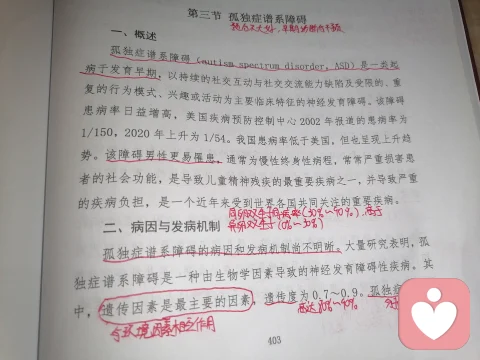 第三节 孤独症谱系障碍
一、概述
孤独症谱系障碍（autism spectrum disorder, ASD）是一类起
病于发育早期，以持续的社交互动与社交交流能力缺陷及受限的、重
复的行为模式、兴趣或活动为主要临床特征的神经发育障碍。该障碍
患病率日益增高，美国疾病预防控制中心 2002 年报道的患病率为
1/150，2020 年上升为 1/54。我国患病率低于美国，但也呈现上升趋
势。该障碍男性更易罹患，通常为慢性终身性病程，常常严重损害患
者的社会功能，是导致儿童精神残疾的最重要疾病之一，并导致严重
的疾病负担，是一个近年来受到世界各国共同关注的重要疾病。
同卵双生子同病率（30%~90%），高于
二、病因与发病机制
异卵双生子（0%~30%）
孤独症谱系障碍的病因和发病机制尚不明晰。大量研究表明，孤
独症谱系障碍是一种由生物学因素导致的神经发育障碍性疾病。其
中，遗传因素是最主要的因素，遗传度为 0.7～0.9。孤独症
与环境因素相互作用
403